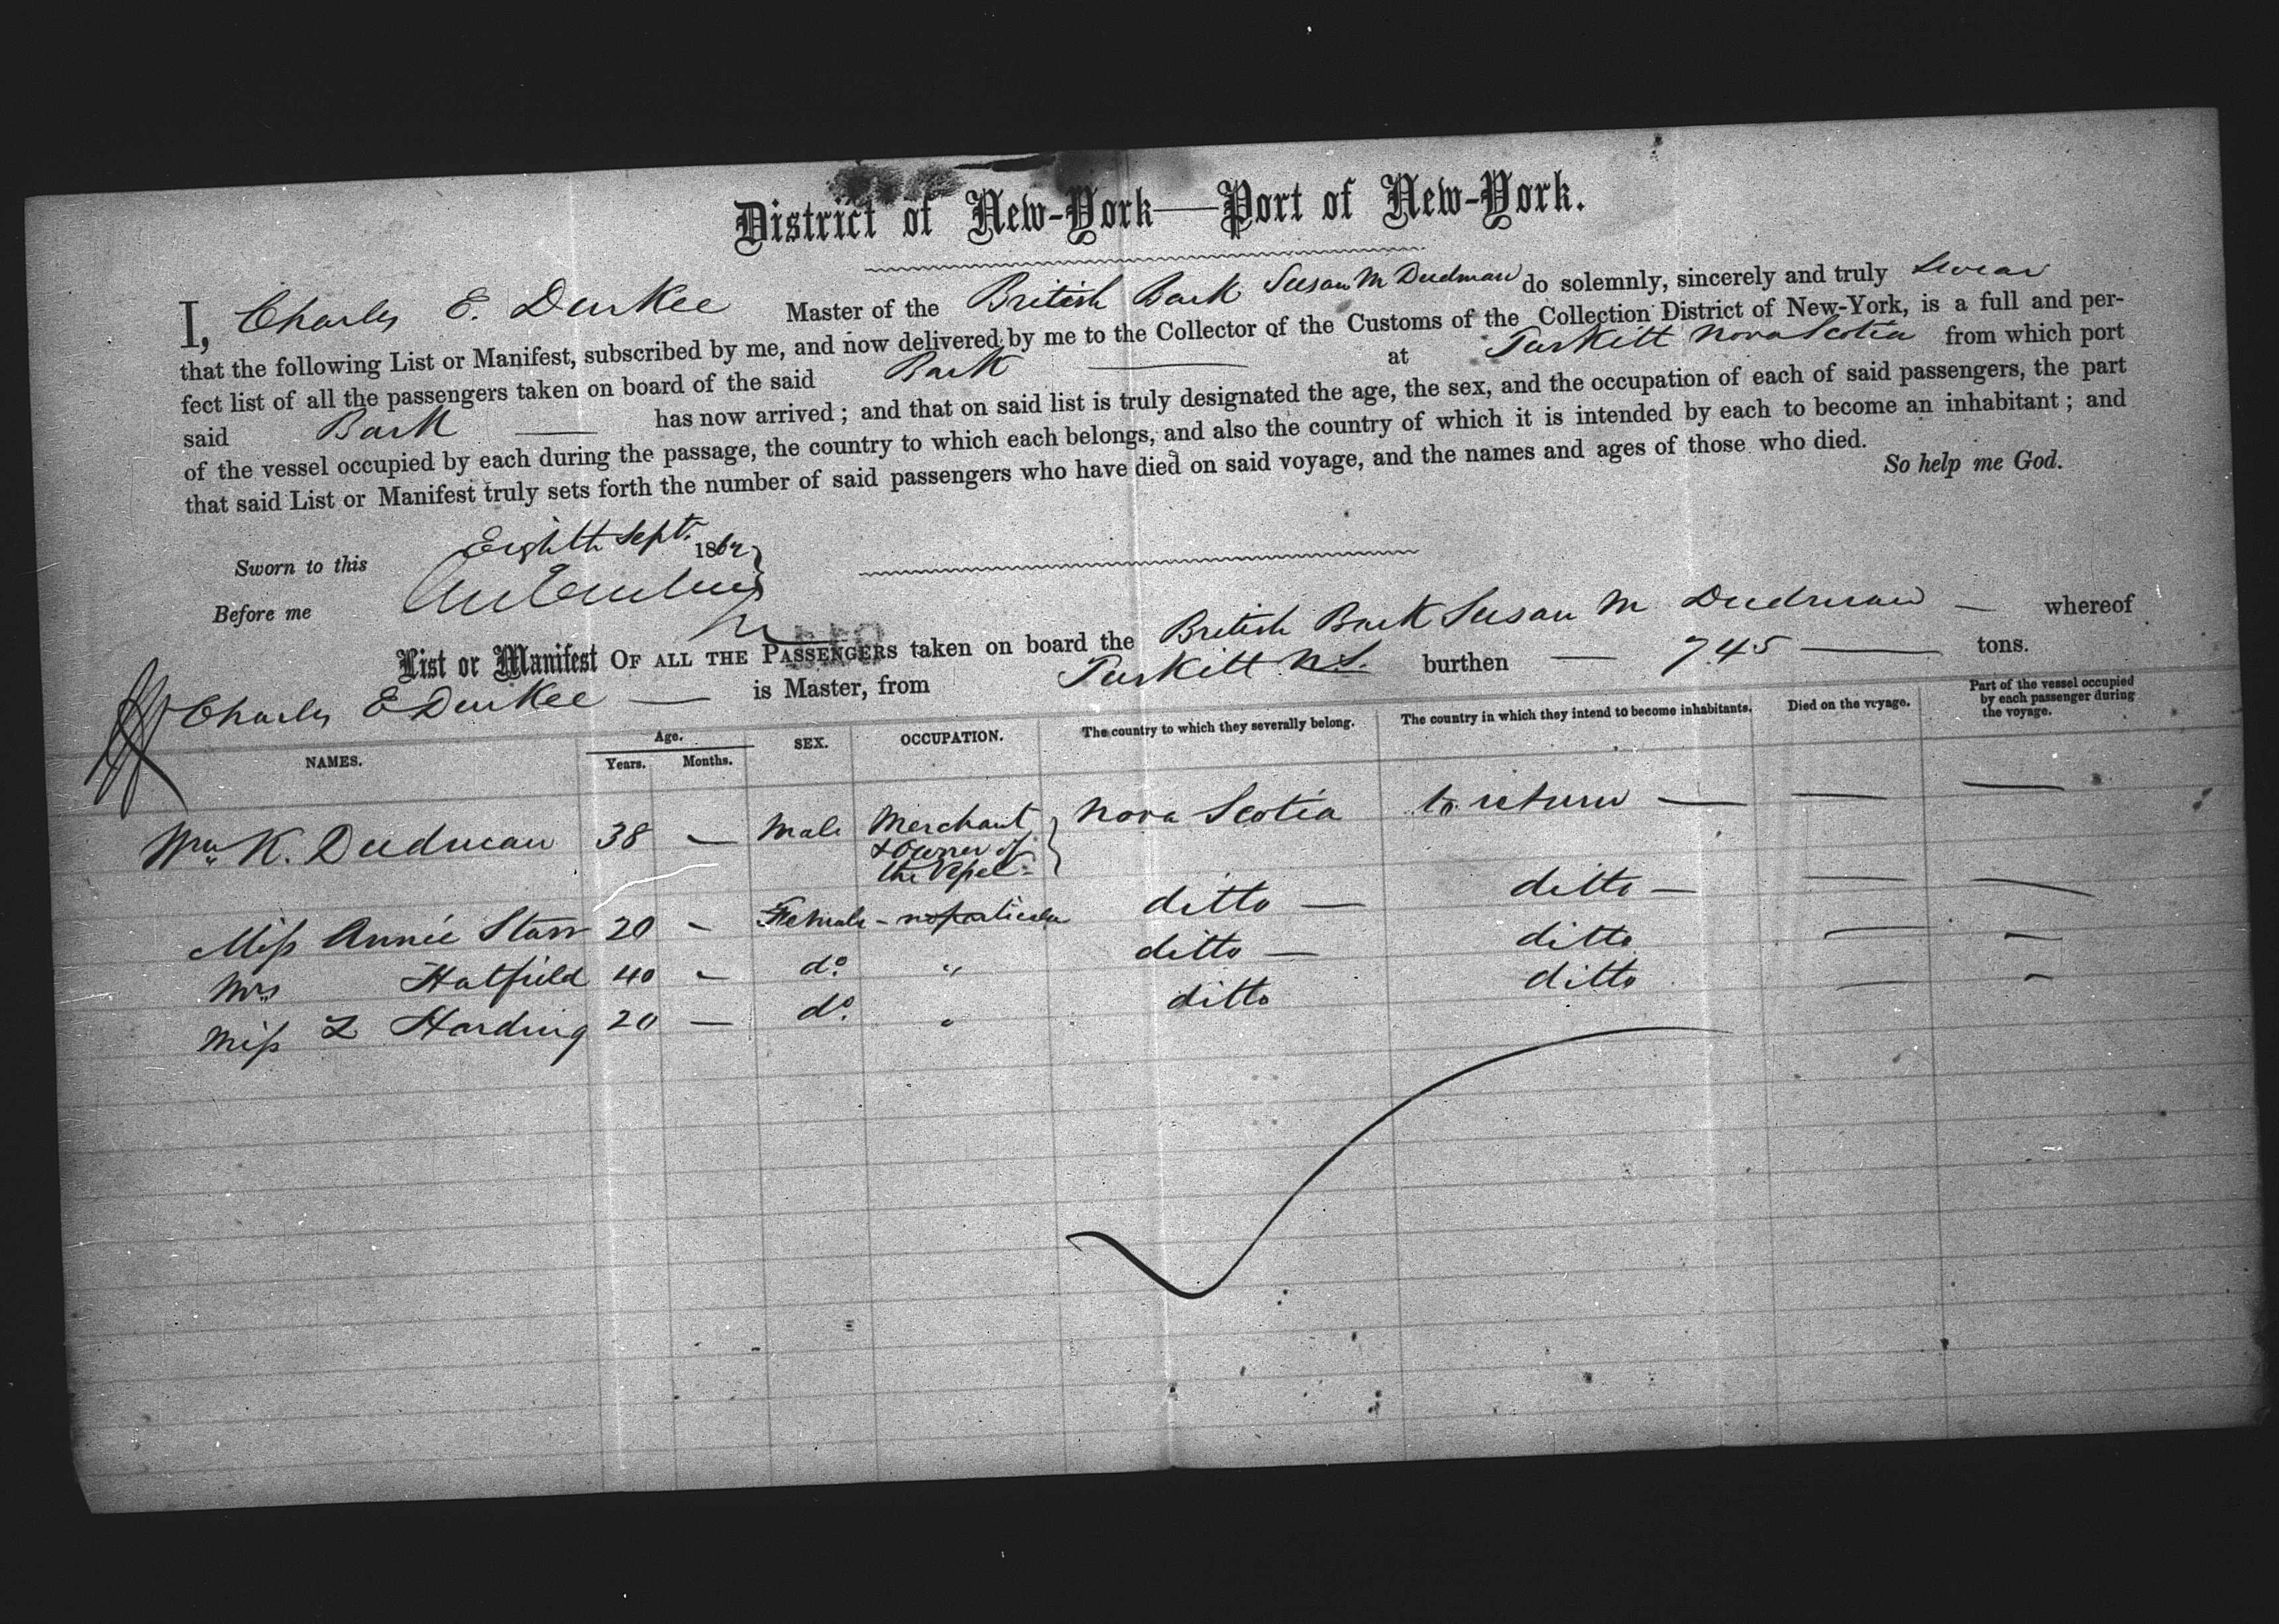 District of New-York—Port of New-York.
I, Charles E. Durkee Master of the British Bark Susan M Dudman do solemnly, sincerely and truly swear
that the following List or Manifest, subscribed by me, and now delivered by me to the Collector of the Customs of the Collection District of New-York, is a full and per-
fect list of all the passengers taken on board of the said Bark — at Tuskitt Nova Scotia from which port
said Bark — has now arrived; and that on said list is truly designated the age, the sex, and the occupation of each of said passengers, the part
of the vessel occupied by each during the passage, the country to which each belongs, and also the country of which it is intended by each to become an inhabitant; and
that said List or Manifest truly sets forth the number of said passengers who have died on said voyage, and the names and ages of those who died.
So help me God.
Sworn to this Eighth Sept. 186
Before me
List or Manifest OF ALL THE PASSENGERS taken on board the British Bark Susan M Dudman — whereof
Charles E Durkee — is Master, from Tuskitt N.S. burthen — 745 — tons.
NAMES. Age. Years. Months. SEX. OCCUPATION. The country to which they severally belong. The country in which they intend to become inhabitants. Died on the voyage. Part of the vessel occupied by each passenger during the voyage.
Wm K. Dudman 38 — Male Merchant Nova Scotia to return — — —
& Owner of
the Vessel
Miss Annie Starr 20 - Female - no particular ditto — ditto — — —
Mrs Hatfield 40 - do " ditto — ditto — —
Miss L Harding 20 — do. " ditto ditto — -